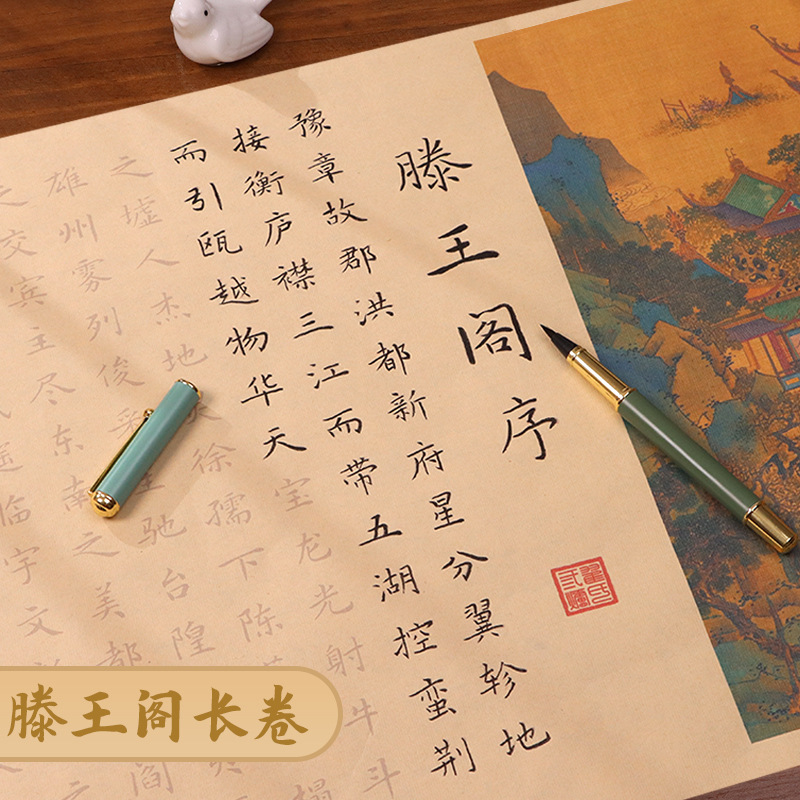 滕王阁序
豫章故郡洪都新府星分翼轸地
接衡庐襟三江而带五湖控蛮荆
而引瓯越物华天宝龙光射牛斗
之墟人杰地灵徐孺下陈榻
雄州雾列俊采星驰台隍
之交宾主尽东南之美都阎
途临宇文
滕王阁长卷